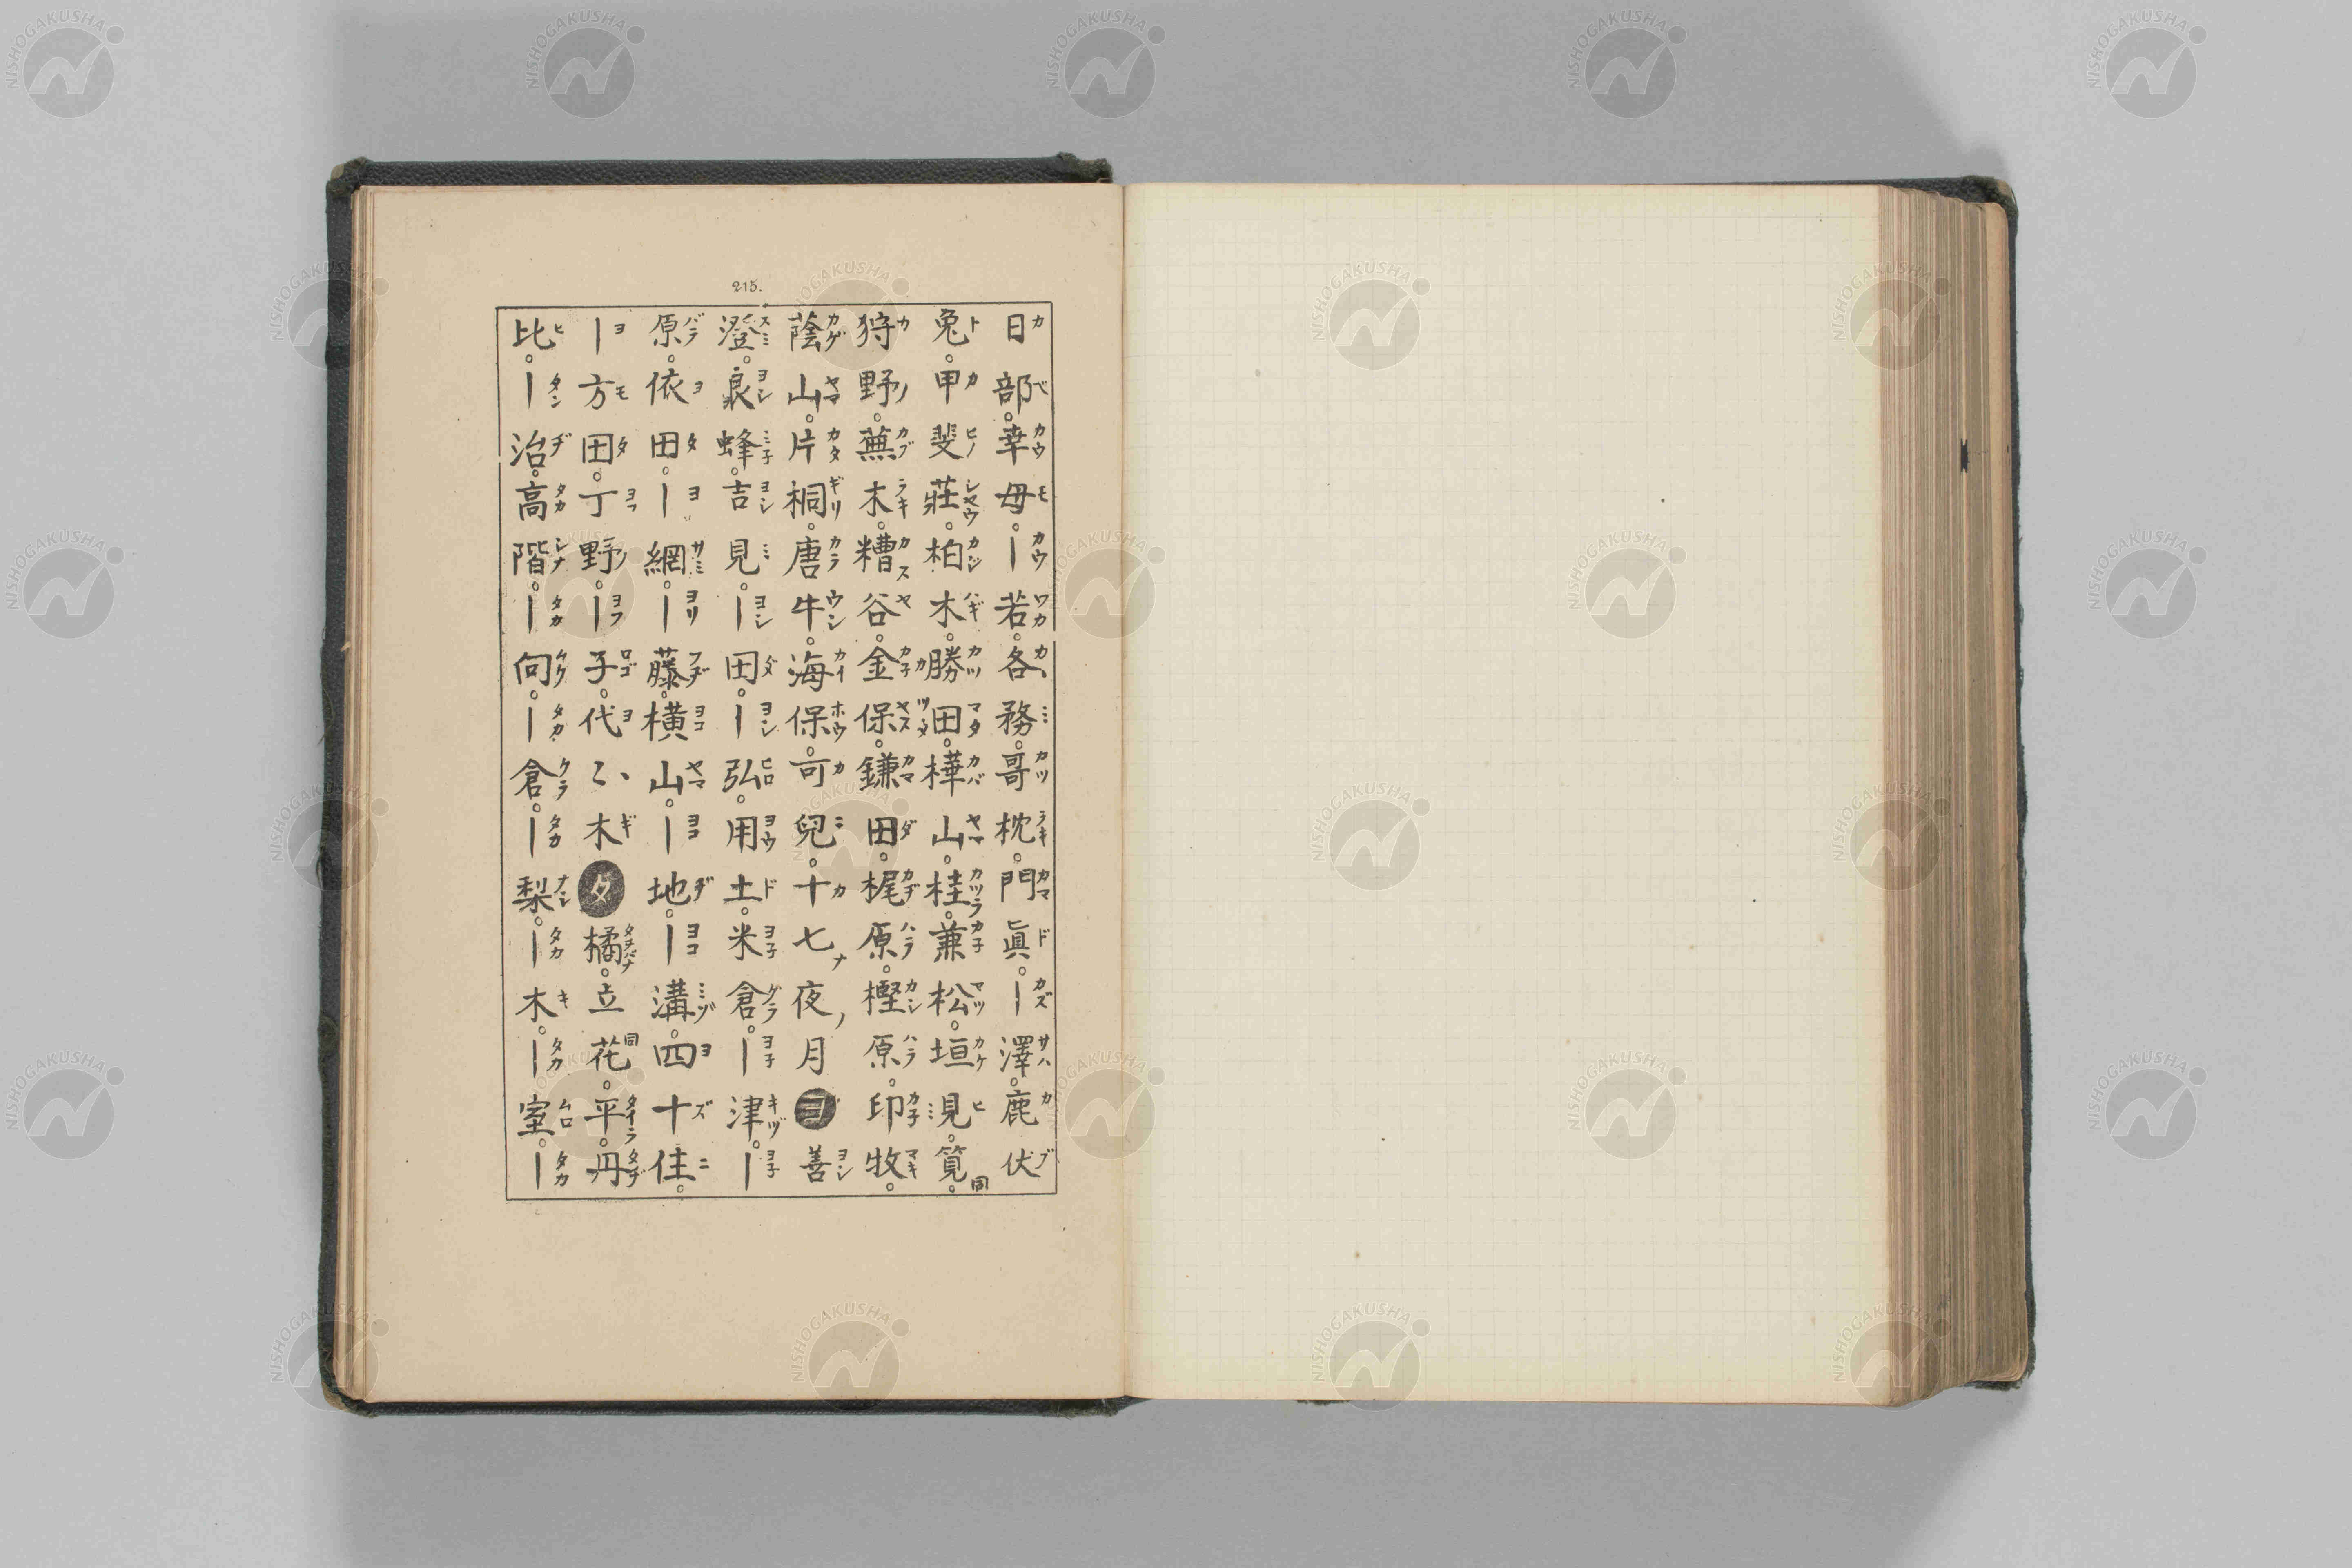 215.
日部。幸母。｜若。各務。哥枕。門眞。｜澤。鹿伏
兎。甲斐莊。柏木。勝田。樺山。桂。兼松。垣見。筧。
狩野。蕪木。糟谷。金保。鎌田。梶原。樫原。印牧。
蔭山。片桐。唐牛。海保。可兒。十七夜月ヨ善
澄。良蜂。吉見。｜田。｜弘。用土。米倉。｜津。｜
原。依田。｜網。｜藤。横山。｜地。｜溝。四十住。
｜方田。丁野。｜子。代々木タ橘。立花。平。丹
比。｜治。高階。｜向。｜倉。｜梨。｜木。｜室。｜
NISHOGAKUSHA